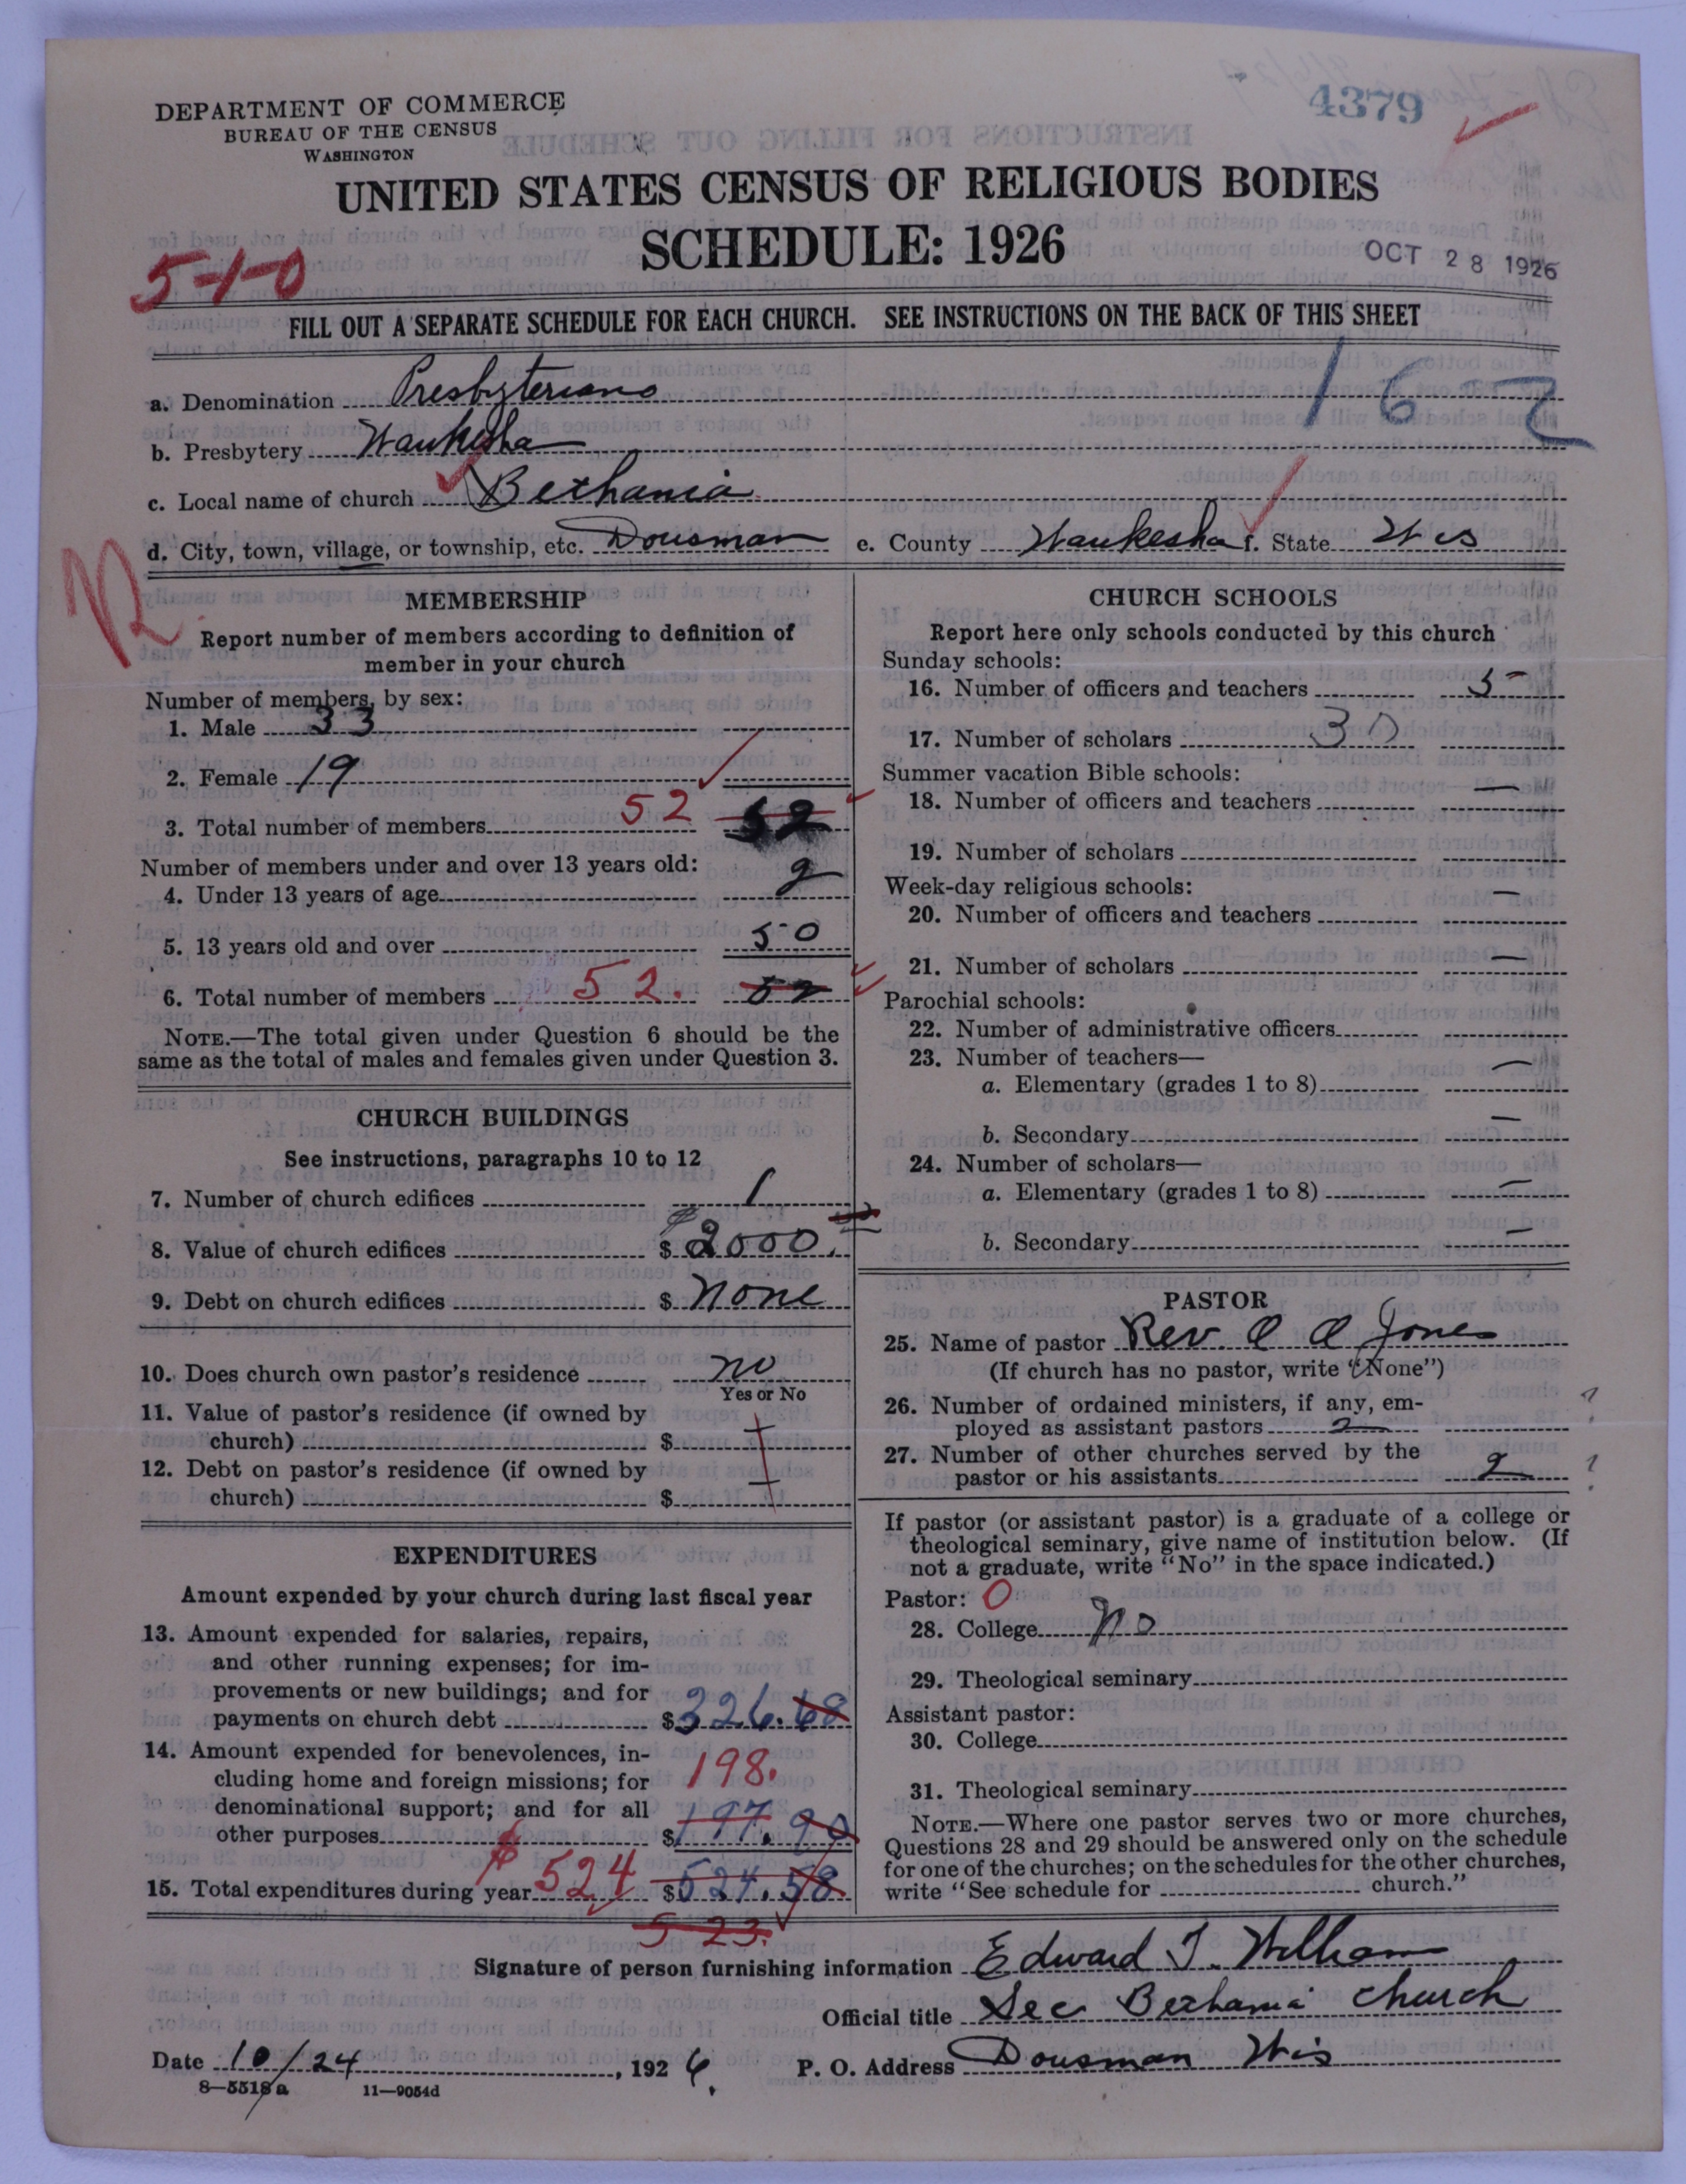 DEPARTMENT OF COMMERCE
BUREAU OF THE CENSUS
WASHINGTON
4379
UNITED STATES CENSUS OF RELIGIOUS BODIES
SCHEDULE: 1926
OCT 28 1926
5-1-0
FILL OUT A SEPARATE SCHEDULE FOR EACH CHURCH. SEE INSTRUCTIONS ON THE BACK OF THIS SHEET
162
a. Denomination Presbyterians
b. Presbytery Waukesha
c. Local name of church Bethania
d. City, town, village, or township, etc. Dousman e. County Waukesha f. State Wis
MEMBERSHIP
Report number of members according to definition of
member in your church
Number of members, by sex:
1. Male 33
2. Female 19
3. Total number of members 52 52
Number of members under and over 13 years old:
4. Under 13 years of age 2
5. 13 years old and over 50
6. Total number of members 52. 52
NOTE.—The total given under Question 6 should be the
same as the total of males and females given under Question 3.
CHURCH BUILDINGS
See instructions, paragraphs 10 to 12
7. Number of church edifices 1
8. Value of church edifices $ 2000.
9. Debt on church edifices $ None
10. Does church own pastor's residence no
Yes or No
11. Value of pastor's residence (if owned by
church) $
12. Debt on pastor's residence (if owned by
church) $
EXPENDITURES
Amount expended by your church during last fiscal year
13. Amount expended for salaries, repairs,
and other running expenses; for im-
provements or new buildings; and for
payments on church debt $ 326.68
14. Amount expended for benevolences, in-
cluding home and foreign missions; for
denominational support; and for all
198.
other purposes $ 197.90
15. Total expenditures during year $ 524 $ 524.58
523.
CHURCH SCHOOLS
Report here only schools conducted by this church
Sunday schools:
16. Number of officers and teachers 5
17. Number of scholars 30
Summer vacation Bible schools:
18. Number of officers and teachers —
19. Number of scholars
Week-day religious schools:
20. Number of officers and teachers —
21. Number of scholars —
Parochial schools:
22. Number of administrative officers
23. Number of teachers—
a. Elementary (grades 1 to 8) —
b. Secondary —
24. Number of scholars—
a. Elementary (grades 1 to 8) —
b. Secondary —
PASTOR
25. Name of pastor Rev. O O Jones
(If church has no pastor, write "None")
26. Number of ordained ministers, if any, em-
ployed as assistant pastors 2 ?
27. Number of other churches served by the
pastor or his assistants 2 ?
If pastor (or assistant pastor) is a graduate of a college or
theological seminary, give name of institution below. (If
not a graduate, write "No" in the space indicated.)
Pastor: 0
28. College No
29. Theological seminary
Assistant pastor:
30. College
31. Theological seminary
NOTE.—Where one pastor serves two or more churches,
Questions 28 and 29 should be answered only on the schedule
for one of the churches; on the schedules for the other churches,
write "See schedule for church."
Signature of person furnishing information Edward T. William
Official title Sec Bethania church
Date 10/24, 1926. P. O. Address Dousman Wis
8—5518a 11—9054d